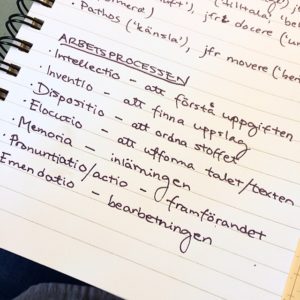 'luft'), jfr docere ('un
· Pathos ('känsla'), jfr movere ('be
ARBETSPROCESSEN
· Intellectio – att förstå uppgiften
· Inventio – att finna uppslag
· Dispositio – att ordna stoffet
· Elocutio – att utforma talet/texten
· Memoria – inlärningen
· Pronuntiatio/actio – framförandet
Emendatio – bearbetningen